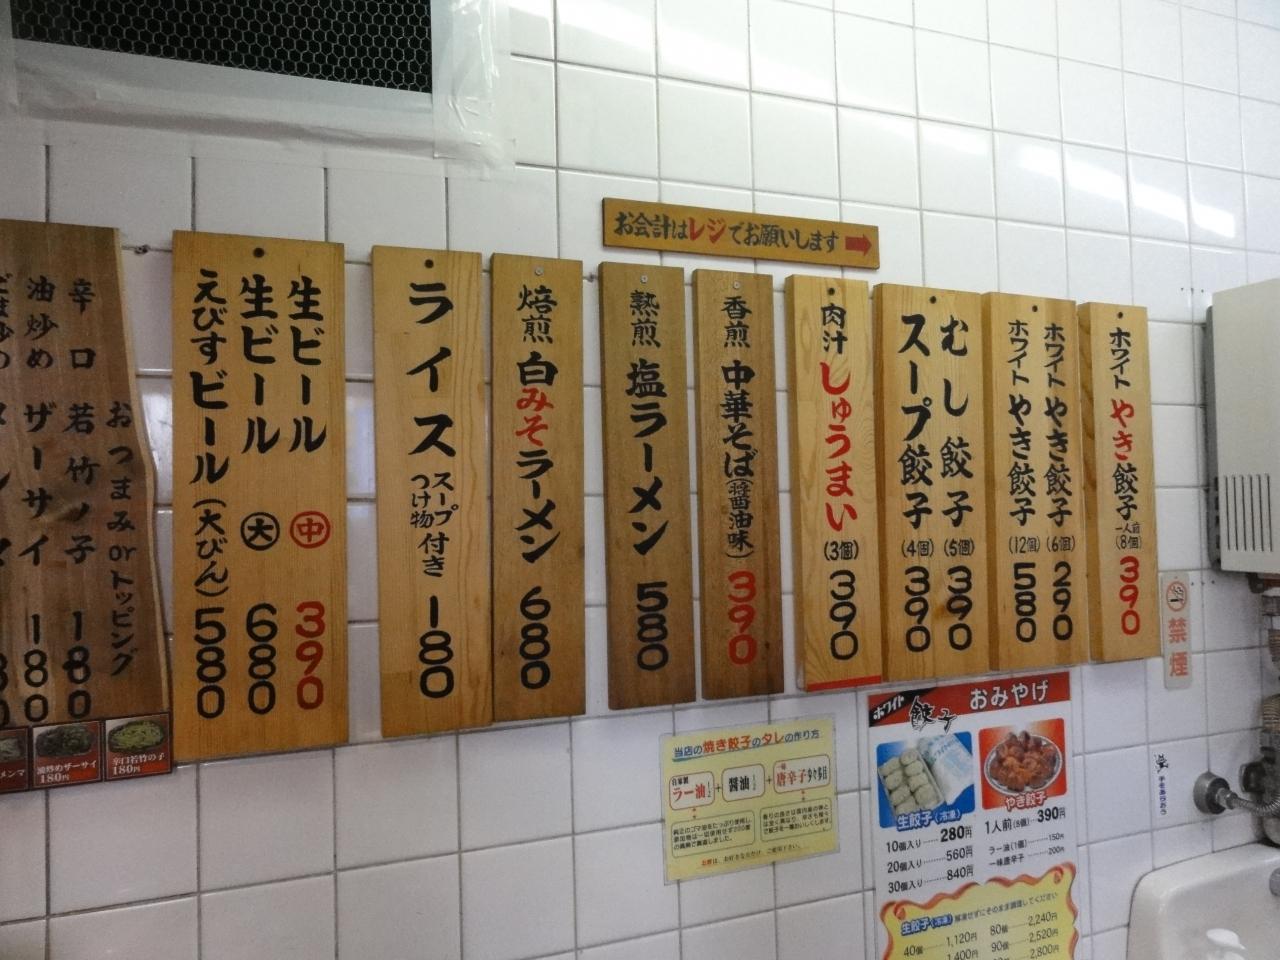 お会計はレジでお願いします
ホワイト やき餃子 一人前(8個) 390
ホワイト やき餃子 (6個) 290
ホワイト やき餃子 (12個) 580
むし餃子 (5個) 390
スープ餃子 (4個) 390
肉汁 しゅうまい (3個) 390
香煎 中華そば(醤油味) 390
熟煎 塩ラーメン 580
焙煎 白みそラーメン 680
ライス スープつけ物付き 180
生ビール 中 390
生ビール 大 680
えびすビール(大びん) 580
おつまみorトッピング
辛口若竹ノ子 180
油炒めザーサイ 180
油炒めザーサイ
180円
辛口若竹の子
180円
禁煙
当店の焼き餃子のタレの作り方
自家製
ラー油 + 醤油 + 一味唐辛子
ホワイト餃子 おみやげ
生餃子(冷凍)
10個入り 280円
20個入り 560円
30個入り 840円
やき餃子
1人前(8個) 390円
ラー油(1個) 150円
一味唐辛子 200円
生餃子(冷凍) 解凍せずにそのまま調理してください
40個 1,120円
80個 2,240円
1,400円
90個 2,520円
2,800円